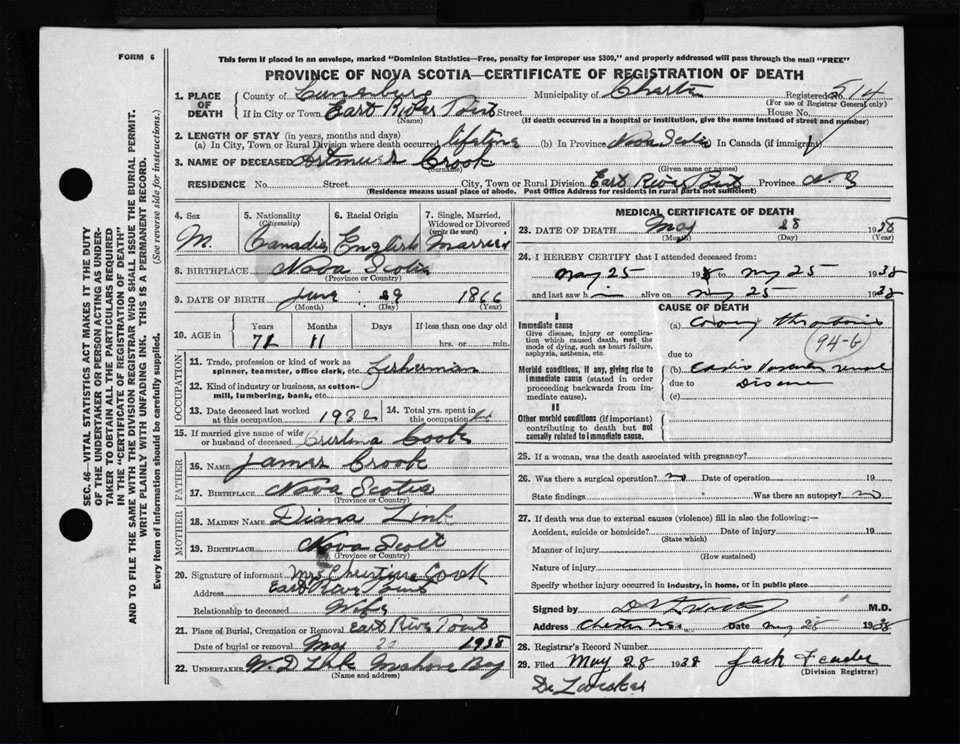 FORM 6
This form if placed in an envelope, marked "Dominion Statistics—Free, penalty for improper use $300," and properly addressed will pass through the mail "FREE"
PROVINCE OF NOVA SCOTIA—CERTIFICATE OF REGISTRATION OF DEATH
1. PLACE OF DEATH
County of Lunenburg Municipality of Chester Registered No. 514
(For use of Registrar General only)
If in City or Town East River Point Street House No.
(Name) (If death occurred in a hospital or institution, give the name instead of street and number)
2. LENGTH OF STAY (in years, months and days)
(a) In City, Town or Rural Division where death occurred lifetime (b) In Province Nova Scotia In Canada (if immigrant)
3. NAME OF DECEASED Crook
(Surname) (Given name or names)
RESIDENCE No. Street City, Town or Rural Division East River Point Province N. S
(Residence means usual place of abode. Post Office Address for residents in rural parts not sufficient)
4. Sex M.
5. Nationality (Citizenship) Canadian
6. Racial Origin English
7. Single, Married, Widowed or Divorced (write the word) Married
8. BIRTHPLACE Nova Scotia
(Province or Country)
9. DATE OF BIRTH June 29 1866
(Month) (Day) (Year)
10. AGE in Years Months Days If less than one day old
71 11 hrs. or min.
OCCUPATION
11. Trade, profession or kind of work as spinner, teamster, office clerk, etc. Fisherman
12. Kind of industry or business, as cotton-mill, lumbering, bank, etc.
13. Date deceased last worked at this occupation 1932
14. Total yrs. spent in this occupation
15. If married give name of wife or husband of deceased
FATHER
16. NAME James Crook
17. BIRTHPLACE Nova Scotia
(Province or Country)
MOTHER
18. MAIDEN NAME Diana
19. BIRTHPLACE Nova Scot
(Province or Country)
20. Signature of informant Mrs. Cook
Address East River Point
Relationship to deceased Wife
21. Place of Burial, Cremation or Removal East River Point
Date of burial or removal May 1938
22. UNDERTAKER W. D. Mahone Bay
(Name and address)
MEDICAL CERTIFICATE OF DEATH
23. DATE OF DEATH May 28 1938
(Month) (Day) (Year)
24. I HEREBY CERTIFY that I attended deceased from:
May 25 193 to May 25 1938
and last saw h im alive on May 25 1938
CAUSE OF DEATH
I
Immediate cause
Give disease, injury or complication which caused death, not the mode of dying, such as heart failure, asphyxia, asthenia, etc.
(a)
94-G
due to
Morbid conditions, if any, giving rise to immediate cause (stated in order proceeding backwards from immediate cause).
(b) Cardio Vascular renal
due to Disease
(c)
II
Other morbid conditions (if important) contributing to death but not causally related to immediate cause.
25. If a woman, was the death associated with pregnancy?
26. Was there a surgical operation? no Date of operation 19
State findings Was there an autopsy? no
27. If death was due to external causes (violence) fill in also the following:—
Accident, suicide or homicide? Date of injury 19
(State which)
Manner of injury
(How sustained)
Nature of injury
Specify whether injury occurred in industry, in home, or in public place
Signed by M.D.
Address Chester N.S. Date May 28 1938
28. Registrar's Record Number
29. Filed May 28 1938 Jack
(Division Registrar)
SEC. 46—VITAL STATISTICS ACT MAKES IT THE DUTY OF THE UNDERTAKER OR PERSON ACTING AS UNDERTAKER TO OBTAIN ALL THE PARTICULARS REQUIRED IN THE "CERTIFICATE OF REGISTRATION OF DEATH"
AND TO FILE THE SAME WITH THE DIVISION REGISTRAR WHO SHALL ISSUE THE BURIAL PERMIT.
WRITE PLAINLY WITH UNFADING INK. THIS IS A PERMANENT RECORD.
Every item of information should be carefully supplied. (See reverse side for instructions.)